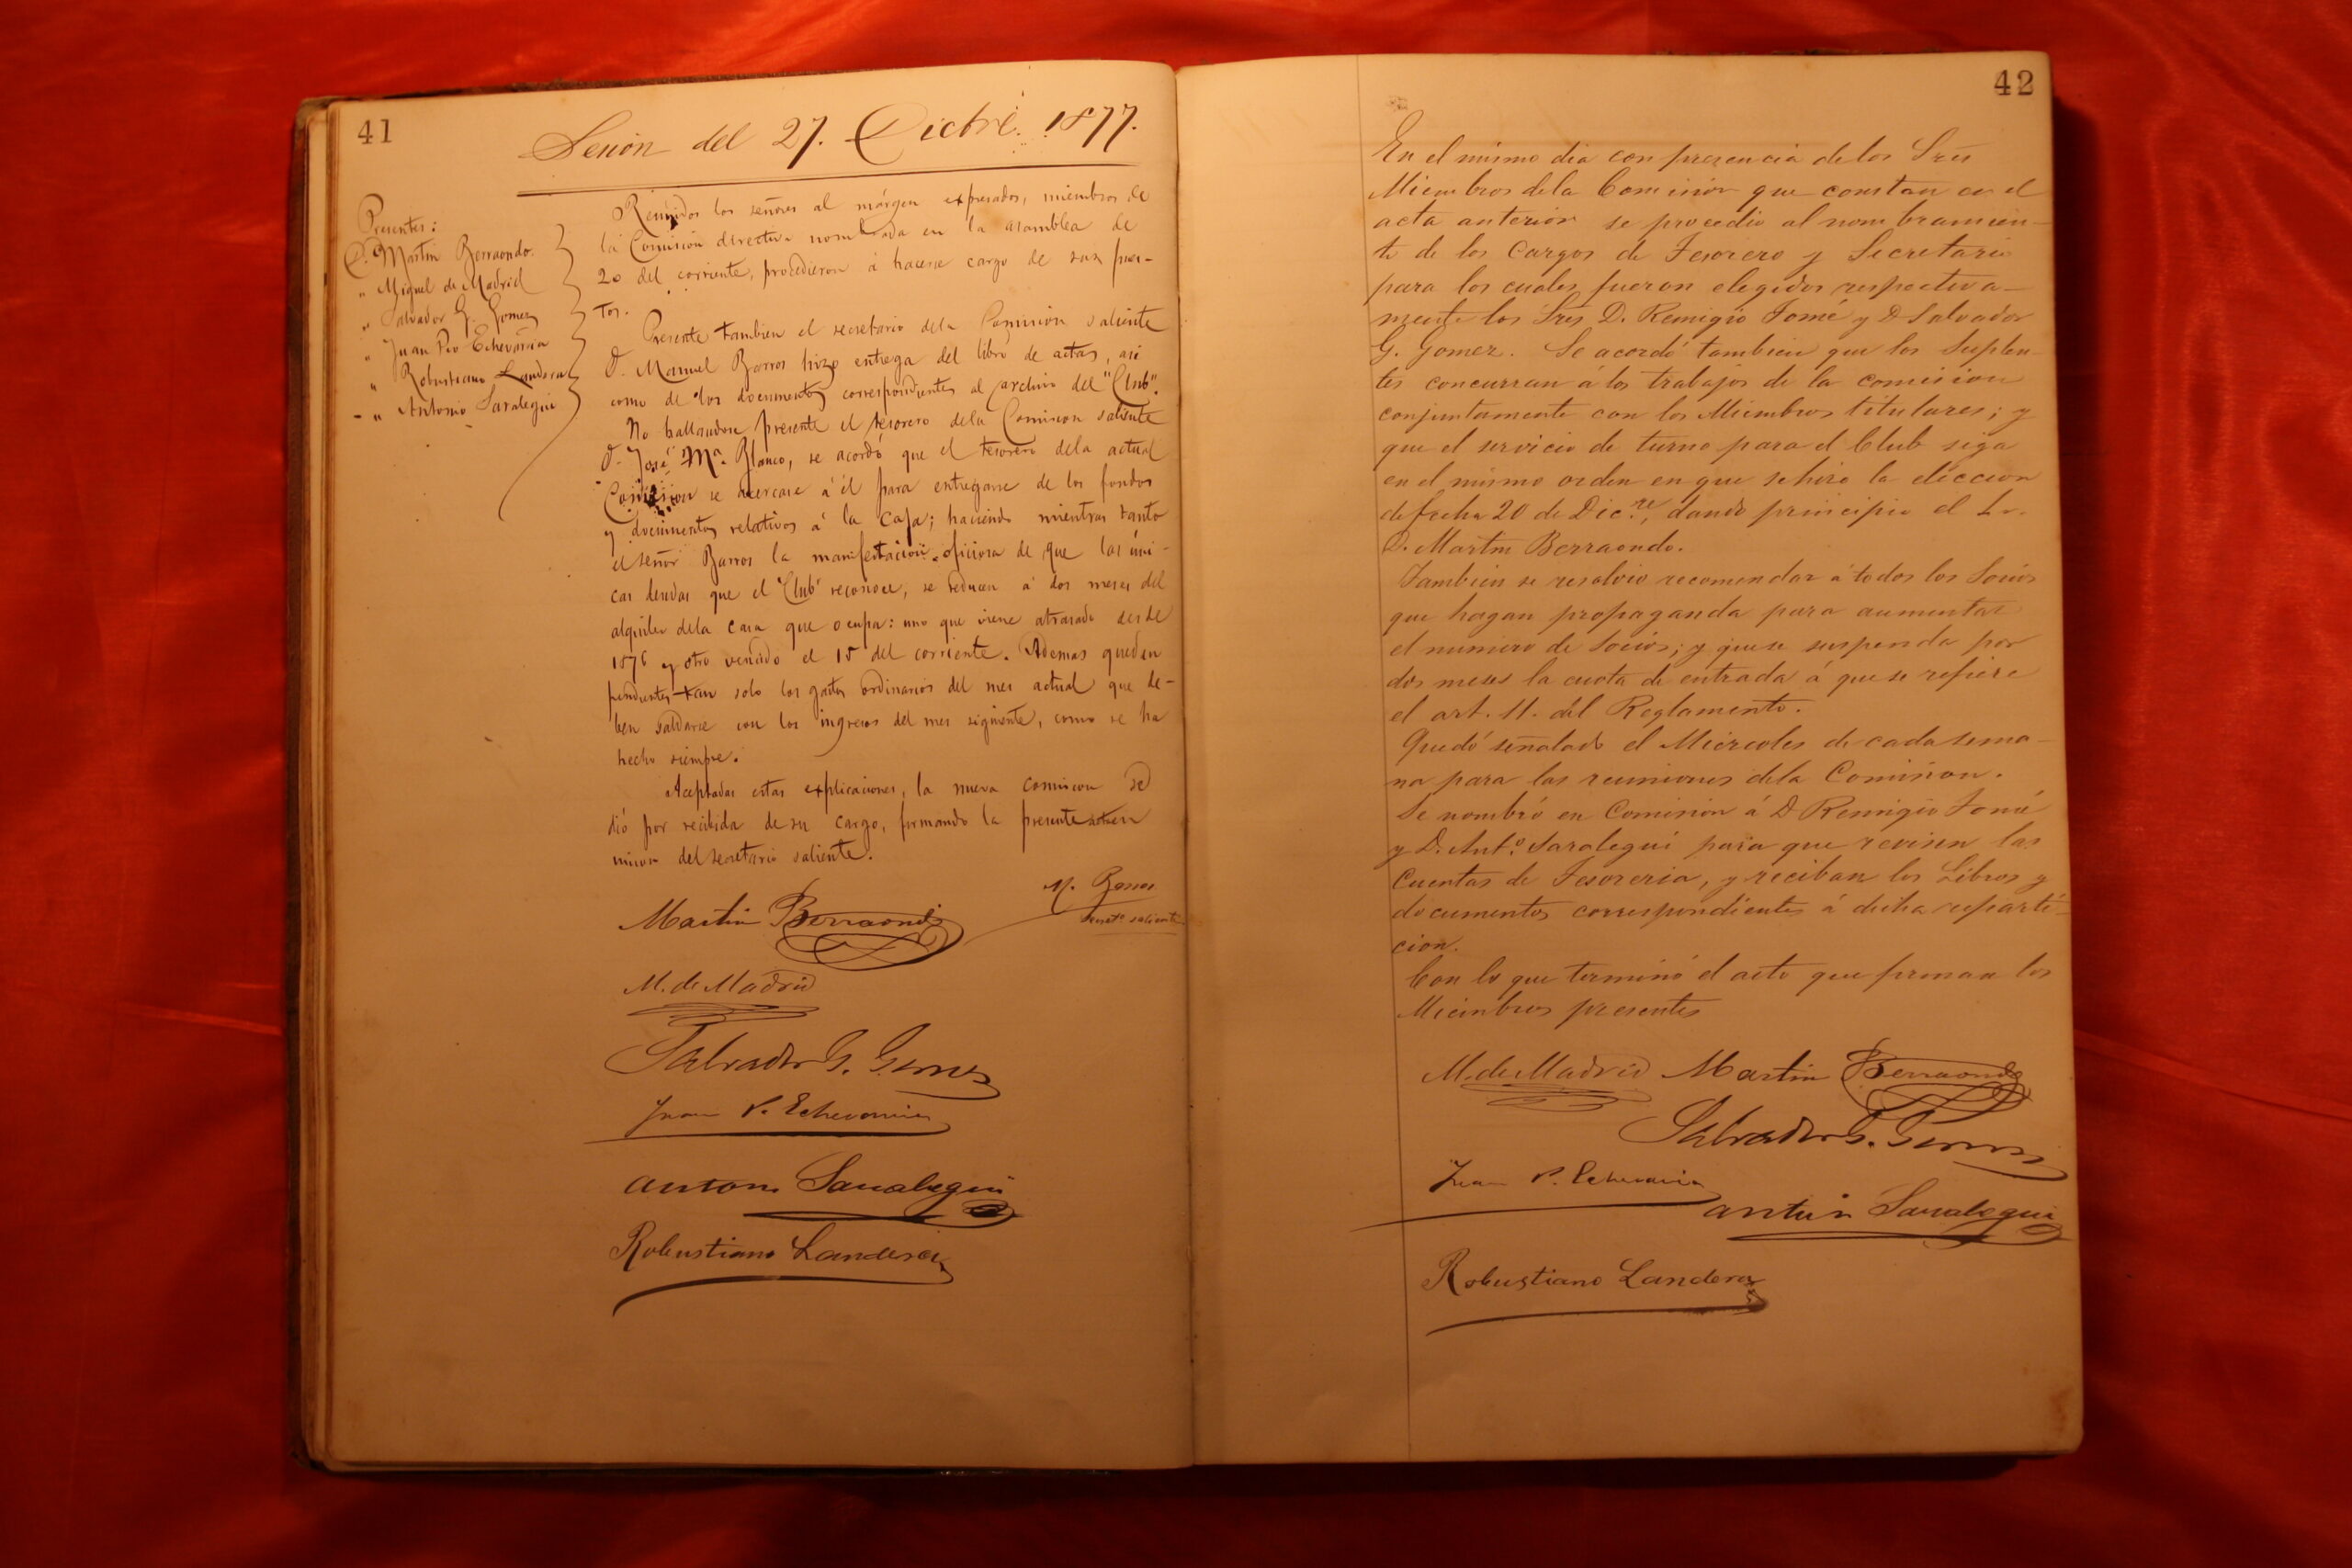 41
Sesión del 27. Dictbre. 1877.
Presentes:
D. Martin Berraondo.
" Miguel de Madrid
" Salvador G. Gomez
" Juan Po Echevarria
" Robustiano Landera
" Antonio Saralegui
Reunidos los señores al márgen expresados, miembros de
la Comisión directiva nombrada en la asamblea de
20 del corriente, procedieron á hacerse cargo de sus pues-
tos.
Presente tambien el secretario dela Comision saliente
D. Manuel Barros hizo entrega del libro de actas, asi
como de los documentos correspondientes al archivo del "Club".
No hallandose presente el tesorero dela Comision saliente
D. José Ma. Blanco, se acordó que el tesorero dela actual
Comision se acercase á él para entregarse de los fondos
y documentos relativos á la Caja; haciendo mientras tanto
el señor Barros la manifestacion oficiosa de que las úni-
cas deudas que el "Club" reconoce, se reducen á dos meses del
alquiler dela casa que ocupa: uno que viene atrasado desde
1876 y otro vencido el 15 del corriente. Ademas quedan
pendientes tan solo los gastos ordinarios del mes actual que de-
ben saldarse con los ingresos del mes siguiente, como se ha
hecho siempre.
Aceptadas estas explicaciones, la nueva comision se
dió por recibida de su cargo, firmando la presente en
union del secretario saliente.
M. Barros
Secreto saliente
Martin Berraondo
M. de Madrid
Salvador G. Gomez
Juan P. Echevarria
Antonio Saralegui
Robustiano Landera
42
En el mismo dia con presencia de los Sres
Miembros dela Comision que constan en el
acta anterior se procedio al nombramien-
to de los Cargos de Tesorero y Secretario
para los cuales fueron elegidos respectiva-
mente los Sres D. Remigio Tomé y D Salvador
G. Gomez. Se acordó tambien que los Suplen-
tes concurran á los trabajos de la comision
conjuntamente con los Miembros titulares; y
que el servicio de turno para el Club siga
en el mismo orden en que se hizo la eleccion
de fecha 20 de Dic.re, dando principio el Sr.
D. Martin Berraondo.
Tambien se resolvio recomendar á todos los Socios
que hagan propaganda para aumentar
el numero de Socios; y que se suspenda por
dos meses la cuota de entrada á que se refiere
el art. 11. del Reglamento.
Quedó señalado el Miércoles de cada sema-
na para las reuniones dela Comision.
Se nombró en Comision á D Remigio Tomé
y D. Anto Saralegui para que revisen las
Cuentas de Tesoreria, y reciban los Libros y
documentos correspondientes á dicha reparti-
cion.
Con lo que terminó el acto que firman los
Miembros presentes
M. de Madrid Martin Berraondo
Salvador G. Gomez
Juan P. Echevarria
Antonio Saralegui
Robustiano Landera